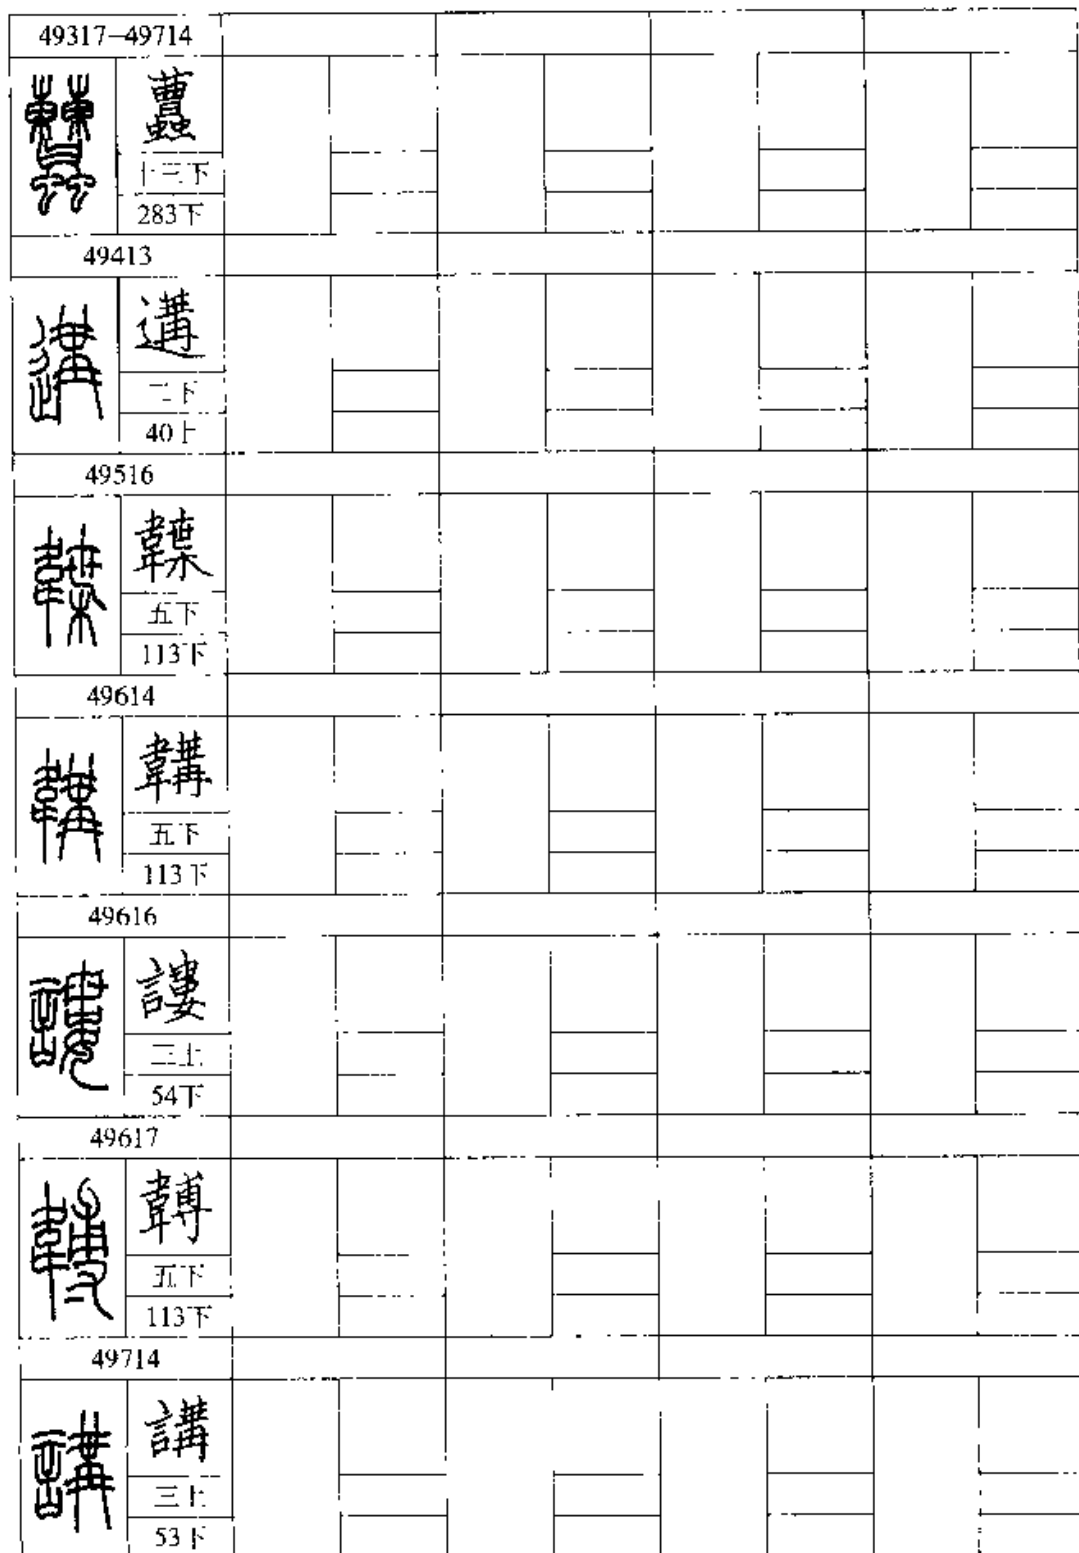 49317–49714
蠤
十三下
283下
49413
遘
二下
40上
49516
韘
五下
113下
49614
韝
五下
113下
49616
謱
三上
54下
49617
韛
五下
113下
49714
講
三上
53下